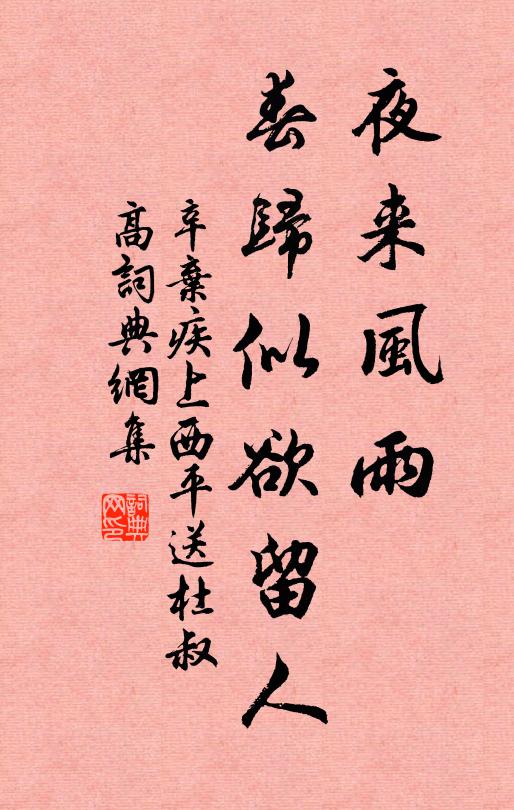 夜来風雨
春歸似欲留人
辛棄疾上西平送杜叔
高詞典網集
詞典
网印